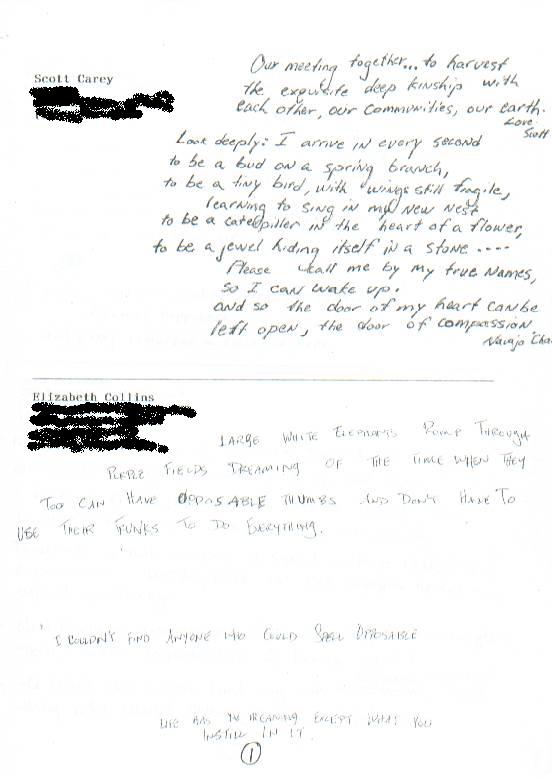 Scott Carey
Our meeting together... to harvest
the exquisite deep kinship with
each other, our communities, our earth.
Love
Scott
Look deeply: I arrive in every second
to be a bud on a spring branch,
to be a tiny bird, with wings still fragile,
learning to sing in my new nest
to be a caterpiller in the heart of a flower,
to be a jewel hiding itself in a stone ....
Please call me by my true names,
so I can wake up.
and so the door of my heart can be
left open, the door of compassion.
Navajo Cha
Elizabeth Collins
LARGE WHITE ELEPHANTS ROMP THROUGH
PURPLE FIELDS DREAMING OF THE TIME WHEN THEY
TOO CAN HAVE OPPOSABLE THUMBS AND DON'T HAVE TO
USE THEIR TRUNKS TO DO EVERYTHING.
I COULDN'T FIND ANYONE WHO COULD SPELL OPPOSABLE
LIFE HAS NO MEANING EXCEPT WHAT YOU
INSTILL IN IT.
1